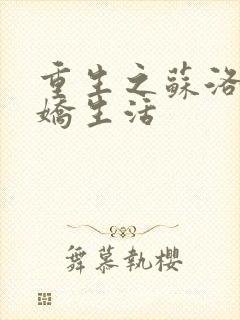 重生之蘇洛
嬌生活
舞慕執櫻